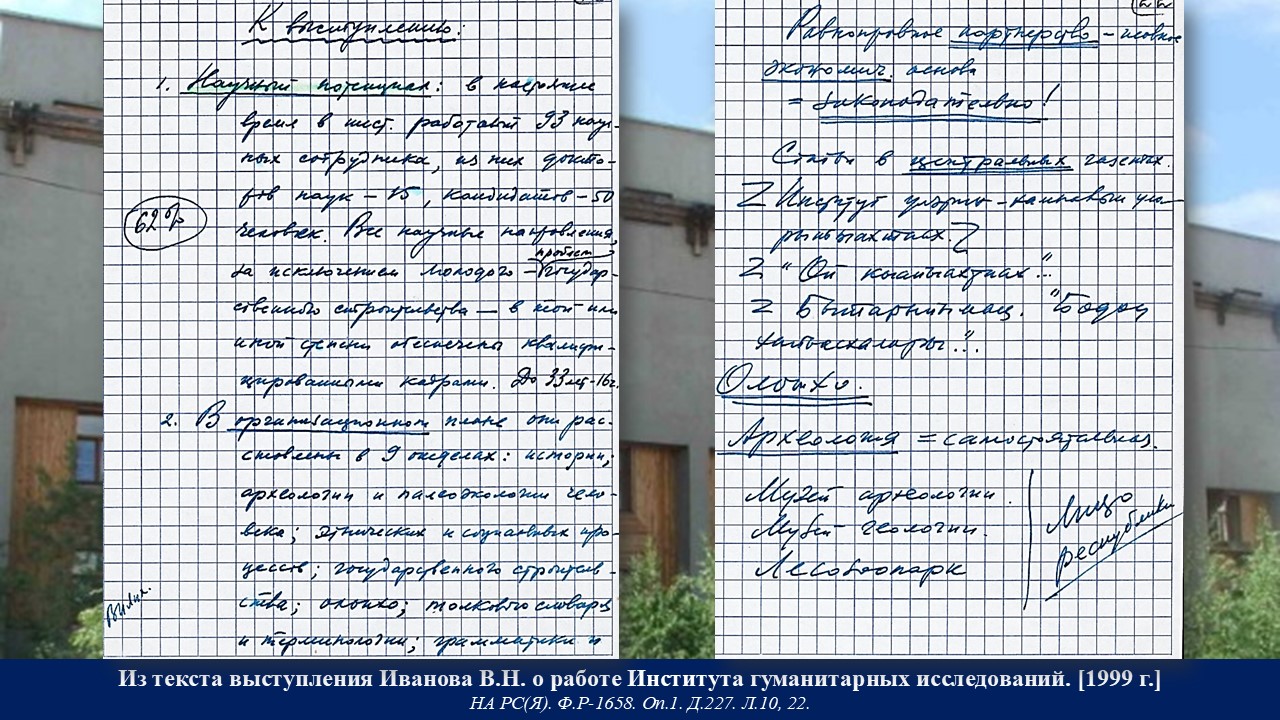 К выступлению:
1. Научный потенциал: в настоящее
время в инст. работают 93 науч-
ных сотрудника, из них докто-
ров наук – 15, кандидатов – 50
62%
человек. Все научные направления,
проблем
за исключением молодого – государ-
ственного строительства — в той или
иной степени обеспечены квалифи-
цированными кадрами. До 33 лет-16ч.
2. В организационном плане они рас-
ставлены в 9 отделах: истории;
археологии и палеоэкологии чело-
века; этнических и социальных про-
цессов; государственного строитель-
ства; олонхо; толкового словаря
и терминологии; грамматики и
22
Равноправное партнерство – главное
экономич. основа
= законодательно!
Статьи в центральных газетах.
Институт
Олонхо.
Археология = самостоятельная.
Музей археологии.
Музей геологии.
Лесозоопарк
Лицо
республики
Из текста выступления Иванова В.Н. о работе Института гуманитарных исследований. [1999 г.]
НА РС(Я). Ф.Р-1658. Оп.1. Д.227. Л.10, 22.